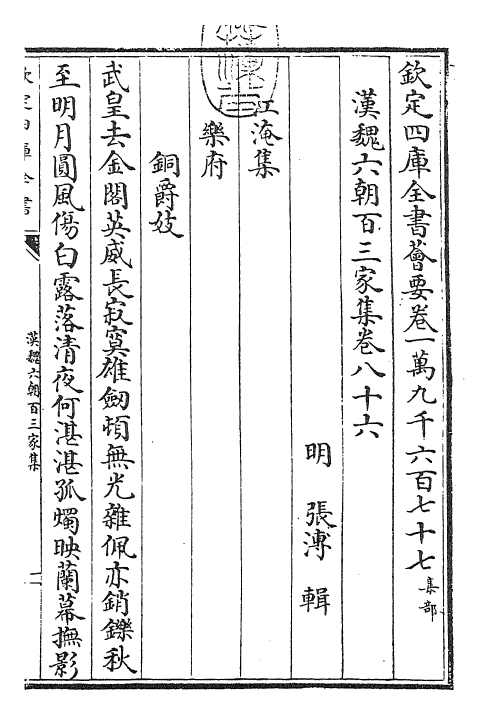 欽定四庫全書薈要卷一萬九千六百七十七 集部
漢魏六朝百三家集卷八十六
明 張溥 輯
江淹集
樂府
銅爵妓
武皇去金閣英威長寂寞雄劔頓無光雜佩亦銷鑠秋
至明月圓風傷白露落清夜何湛湛孤燭映蘭幕撫影
欽定四庫全書
漢魏六朝百三家集